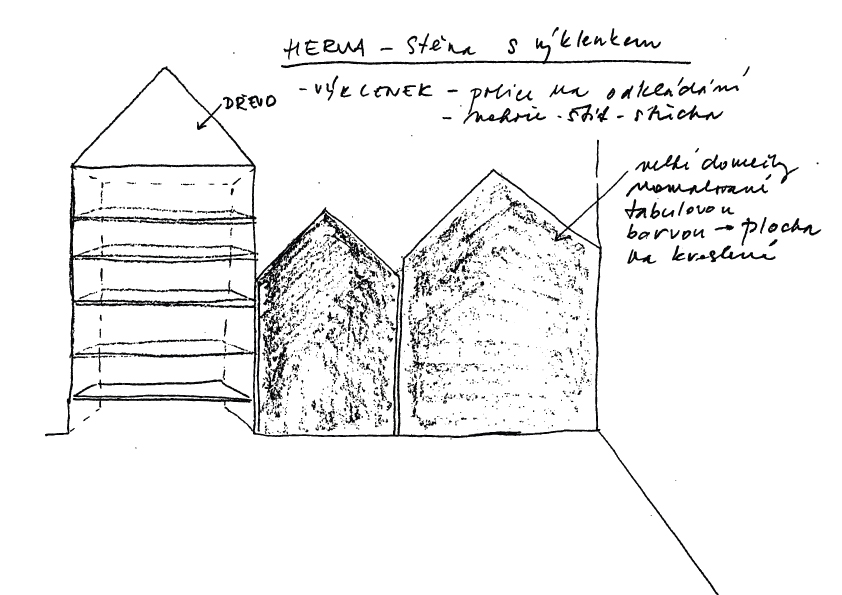 HERNA - stěna s výklenkem
- VÝKLENEK - police na odkládání
- nahoře - štít - střecha
DŘEVO
velké domečky
namalované
tabulovou
barvou → plocha
na kreslení